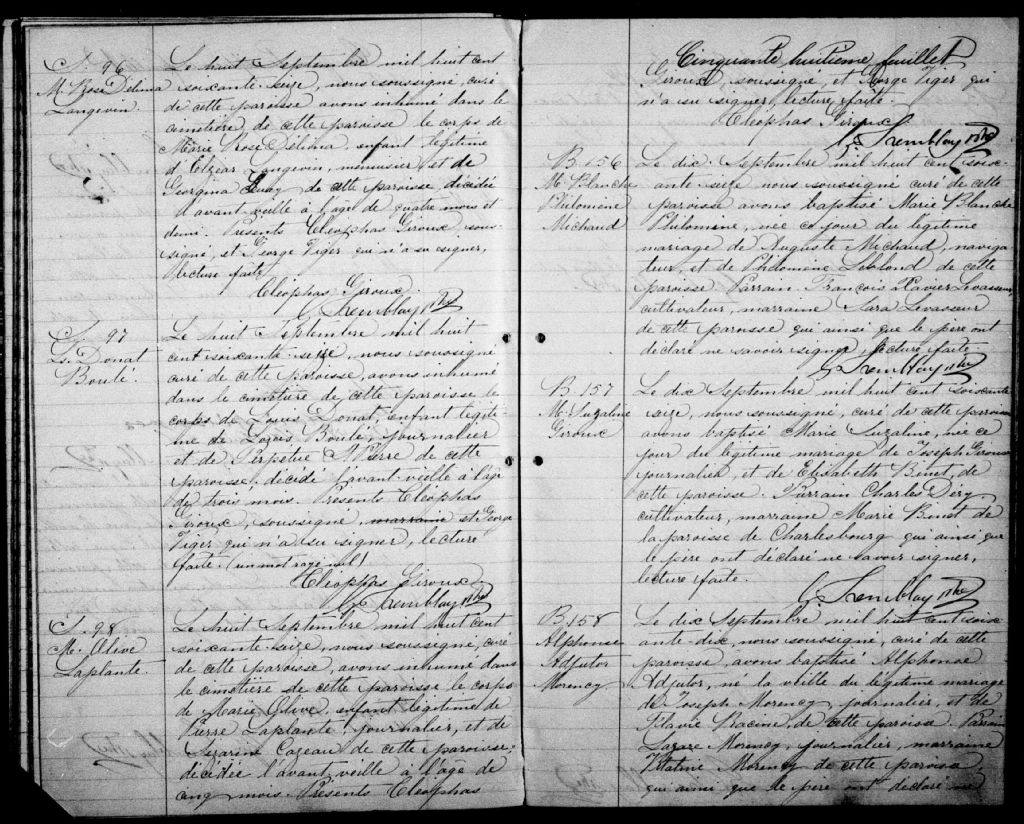 S. 96
M. Rose Délima
Langevin.
Le huit Septembre mil huit cent
soixante-seize, nous soussigné, curé
de cette paroisse avons inhumé dans le
cimetière de cette paroisse le corps de
Marie Rose Délima, enfant légitime
d'Elzéar Langevin, menuisier, et de
Georgina de cette paroisse, décédée
l'avant veille à l'age de quatre mois et
demi. Présents Cléophas Giroux, sous-
signé, et George Tiger qui n'a su signer,
lecture faite.
Cléophas Giroux.
G. Tremblay Ptre
S. 97
Ls. Donat
Boulé.
Le huit Septembre mil huit
cent soixante-seize, nous soussigné
curé de cette paroisse, avons inhumé
dans le cimetière de cette paroisse le
corps de Louis Donat, enfant légiti-
me de Louis Boulé, journalier
et de Perpétue St Pierre de cette
paroisse, décédé l'avant-veille à l'age
de trois mois. Présents Cléophas
Giroux, soussigné, marraine et George
Tiger qui n'a su signer, lecture
faite. (un mot rayé nul)
Cléophas Giroux
G. Tremblay Ptre
S. 98
M. Olive
Laplante.
Le huit Septembre mil huit cent
soixante-seize, nous soussigné, curé
de cette paroisse, avons inhumé dans
le cimetière de cette paroisse le corps
de Marie Olive, enfant légitime de
Pierre Laplante, journalier, et de
Sézarine Cazeau de cette paroisse,
décédée l'avant veille à l'age de
cinq mois. Présents Cléophas
Cinquante huitième feuillet
Giroux, soussigné, et George Tiger qui
n'a su signer, lecture faite.
Cléophas Giroux
G. Tremblay Ptre
B 156
M. Blanche
Philomène
Michaud
Le dix Septembre mil huit cent soix-
ante-seize nous soussigné curé de cette
paroisse avons baptisé Marie Blanche
Philomène, née ce jour du légitime
mariage de Auguste Michaud, naviga-
teur, et de Philomène Leblond de cette
paroisse. Parrain François Xavier Levasseur,
cultivateur, marraine Sara Levasseur
de cette paroisse qui ainsi que le père ont
déclaré ne savoir signer, lecture faite.
G. Tremblay Ptre
B 157
M. Suzaline
Giroux
Le dix Septembre mil huit cent soixante
seize, nous soussigné, curé de cette paroisse
avons baptisé Marie Suzaline, née ce
jour du légitime mariage de Joseph Giroux
journalier, et de Elisabeth Binet de
cette paroisse. Parrain Charles Déry
cultivateur, marraine Marie Binet de
la paroisse de Charlesbourg qui ainsi que
le père ont déclaré ne savoir signer,
lecture faite.
G. Tremblay Ptre
B 158
Alphonse
Adjutor
Morency
Le dix Septembre mil huit cent soix-
ante-dix, nous soussigné, curé de cette
paroisse, avons baptisé Alphonse
Adjutor, né la veille du légitime mariage
de Joseph Morency, journalier, et de
Flavie Racine de cette paroisse. Parrain
Lazare Morency, journalier, marraine
Morency de cette paroisse,
qui ainsi que le père ont déclaré ne